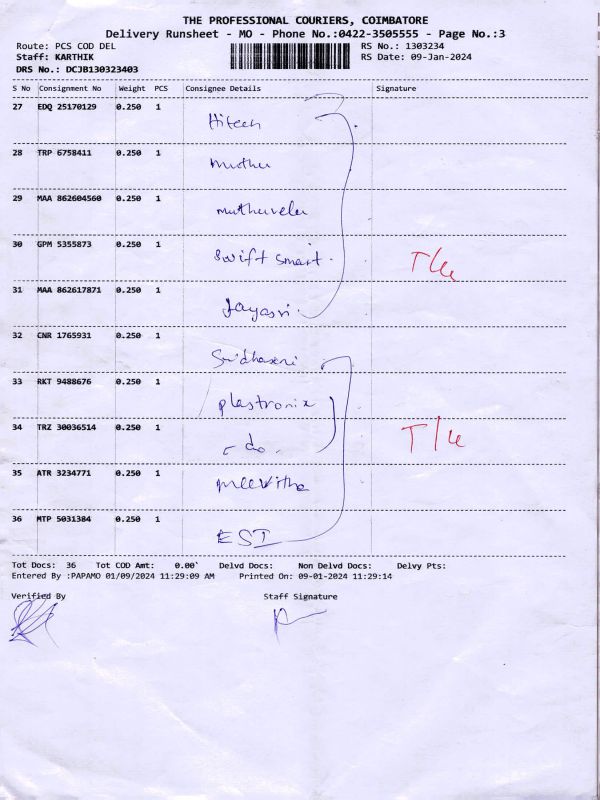 THE PROFESSIONAL COURIERS, COIMBATORE
Delivery Runsheet - MO - Phone No.:0422-3505555 - Page No.:3
Route: PCS COD DEL RS No.: 1303234
Staff: KARTHIK RS Date: 09-Jan-2024
DRS No.: DCJB130323403
S No Consignment No Weight PCS Consignee Details Signature
27 EDQ 25170129 0.250 1 Hitech
28 TRP 6758411 0.250 1 muthu
29 MAA 862604560 0.250 1 muthuvelu
30 GPM 5355873 0.250 1 Swift smart.
31 MAA 862617871 0.250 1 Jayasri
32 CNR 1765931 0.250 1
33 RKT 9488676 0.250 1 plastronix
34 TRZ 30036514 0.250 1 - do.
35 ATR 3234771 0.250 1
36 MTP 5031384 0.250 1 EST
Tot Docs: 36 Tot COD Amt: 0.00` Delvd Docs: Non Delvd Docs: Delvy Pts:
Entered By :PAPAMO 01/09/2024 11:29:09 AM Printed On: 09-01-2024 11:29:14
Verified By Staff Signature